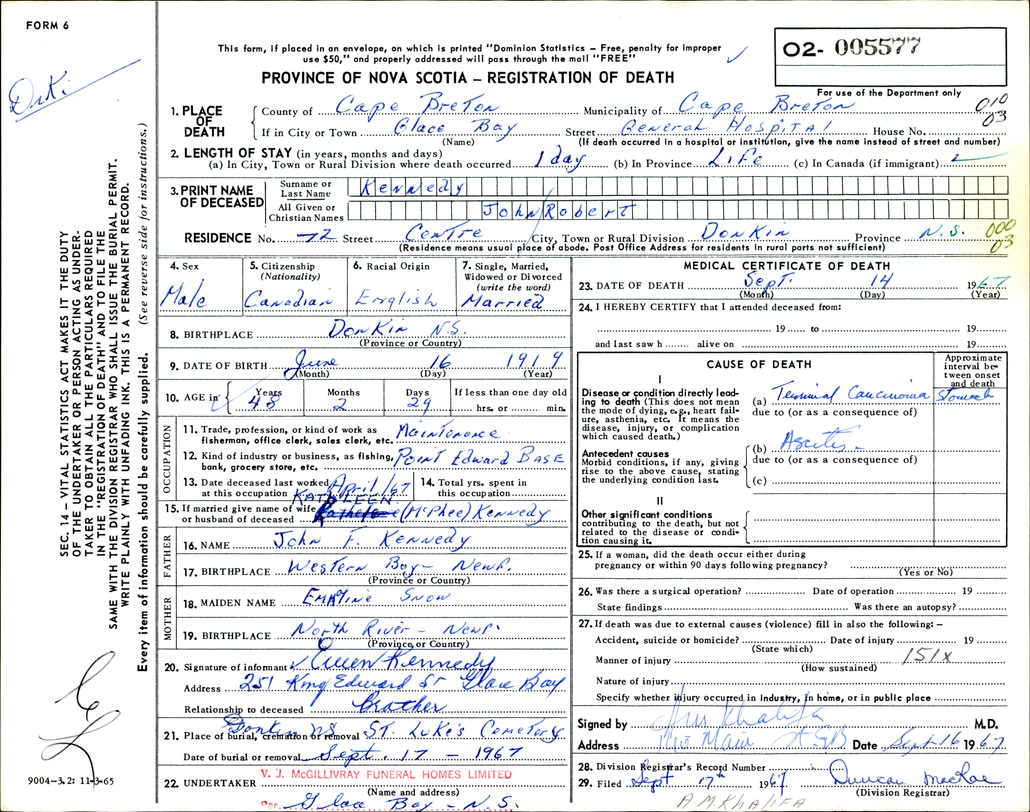 FORM 6
This form, if placed in an envelope, on which is printed "Dominion Statistics – Free, penalty for improper
use $50," and properly addressed will pass through the mail "FREE"
PROVINCE OF NOVA SCOTIA – REGISTRATION OF DEATH
02- 005577
For use of the Department only
1. PLACE OF DEATH
County of Cape Breton Municipality of Cape Breton 010
If in City or Town Glace Bay Street General Hospital House No. 03
(Name) (If death occurred in a hospital or institution, give the name instead of street and number)
2. LENGTH OF STAY (in years, months and days)
(a) In City, Town or Rural Division where death occurred 1 day (b) In Province Life (c) In Canada (if immigrant)
3. PRINT NAME OF DECEASED
Surname or Last Name Kennedy
All Given or Christian Names John Robert
RESIDENCE No. 72 Street Centre City, Town or Rural Division Donkin Province N.S. 000
(Residence means usual place of abode. Post Office Address for residents in rural parts not sufficient) 03
4. Sex
Male
5. Citizenship
(Nationality)
Canadian
6. Racial Origin
English
7. Single, Married,
Widowed or Divorced
(write the word)
Married
8. BIRTHPLACE Donkin N.S.
(Province or Country)
9. DATE OF BIRTH June 16 1919
(Month) (Day) (Year)
10. AGE in Years Months Days If less than one day old
48 2 29 hrs. or min.
OCCUPATION
11. Trade, profession, or kind of work as
fisherman, office clerk, sales clerk, etc. Maintenance
12. Kind of industry or business, as fishing,
bank, grocery store, etc. Point Edward Base
13. Date deceased last worked
at this occupation April/67
14. Total yrs. spent in
this occupation
KATHLEEN
15. If married give name of wife
or husband of deceased (McPhee) Kennedy
FATHER
16. NAME John F. Kennedy
17. BIRTHPLACE Western Bay – Newf.
(Province or Country)
MOTHER
18. MAIDEN NAME Snow
19. BIRTHPLACE North River – Newf.
(Province or Country)
20. Signature of informant Owen Kennedy
Address 251 King Edward St Glace Bay
Relationship to deceased Brother
21. Place of burial, cremation or removal Donkin NS St. Luke's Cemetery
Date of burial or removal Sept. 17 – 1967
22. UNDERTAKER V. J. McGILLIVRAY FUNERAL HOMES LIMITED
(Name and address)
Per Glace Bay – N.S.
MEDICAL CERTIFICATE OF DEATH
23. DATE OF DEATH Sept. 14 1967
(Month) (Day) (Year)
24. I HEREBY CERTIFY that I attended deceased from:
19 to 19
and last saw h alive on 19
CAUSE OF DEATH
Approximate interval between onset and death
I
Disease or condition directly leading to death (This does not mean the mode of dying, e.g., heart failure, asthenia, etc. It means the disease, injury, or complication which caused death.)
(a) Terminal Carcinoma Stomach
due to (or as a consequence of)
Antecedent causes
Morbid conditions, if any, giving rise to the above cause, stating the underlying condition last.
(b) Ascites –
due to (or as a consequence of)
(c)
II
Other significant conditions
contributing to the death, but not related to the disease or condition causing it.
25. If a woman, did the death occur either during
pregnancy or within 90 days following pregnancy?
(Yes or No)
26. Was there a surgical operation? Date of operation 19
State findings Was there an autopsy?
27. If death was due to external causes (violence) fill in also the following: –
Accident, suicide or homicide? Date of injury 19
(State which)
Manner of injury 151X
(How sustained)
Nature of injury
Specify whether injury occurred in industry, in home, or in public place
Signed by Khalifa M.D.
Address Main Date Sept 16 1967
28. Division Registrar's Record Number
29. Filed Sept 17th 1967 Duncan MacRae
(Division Registrar)
A M KHALIFA
SEC. 14 – VITAL STATISTICS ACT MAKES IT THE DUTY
OF THE UNDERTAKER OR PERSON ACTING AS UNDER-
TAKER TO OBTAIN ALL THE PARTICULARS REQUIRED
IN THE "REGISTRATION OF DEATH" AND TO FILE THE
SAME WITH THE DIVISION REGISTRAR WHO SHALL ISSUE THE BURIAL PERMIT.
WRITE PLAINLY WITH UNFADING INK. THIS IS A PERMANENT RECORD.
Every item of information should be carefully supplied. (See reverse side for instructions.)
9004-3.2: 11-3-65